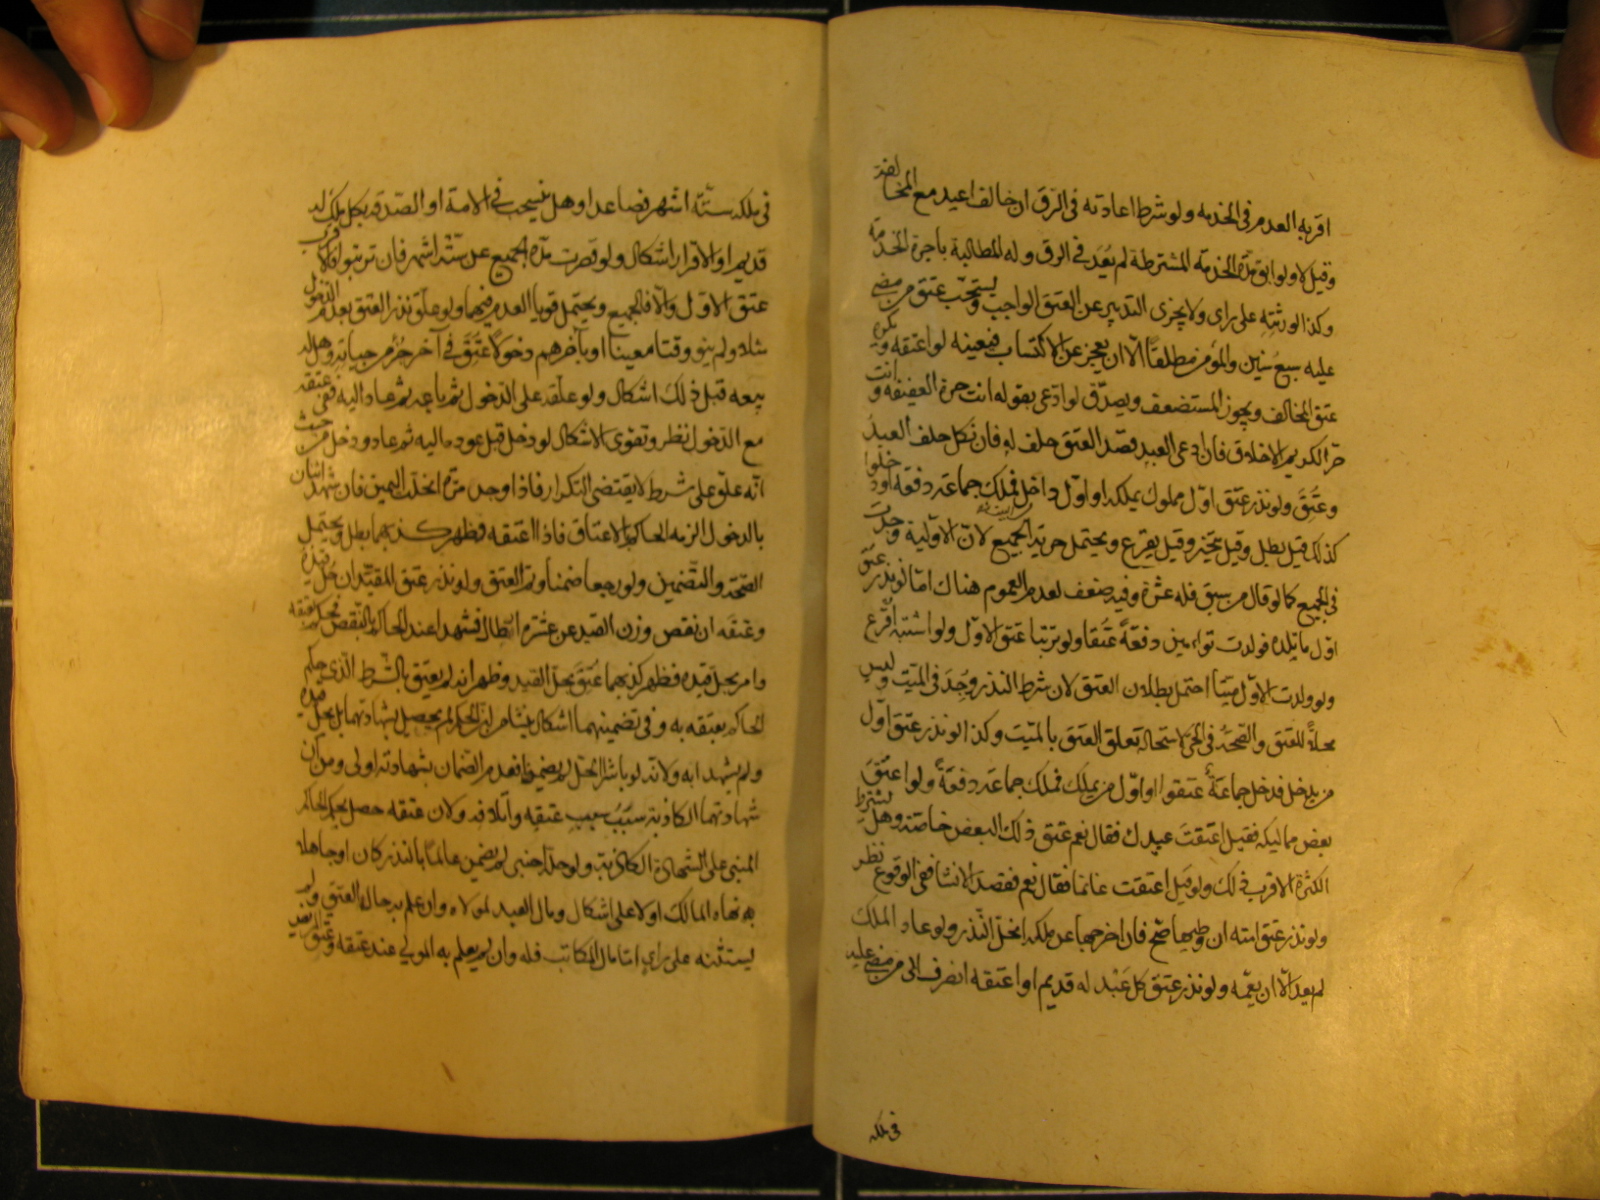 اقربه العدم في الخدمة ولو شرط اعادته في الرق ان خالف اعيد مع المخالفة
وقيل لا ولو ابق مدة الخدمة المشترطة لم يُعَد في الرق وله المطالبة باجرة الخدمة
وكذا لورثته على راى ولا يجزى التدبير عن العتق الواجب ويستحب عتق من مضى
عليه سبع سنين والمؤمن مطلقاً الا ان يعجز عن الاكتساب فيعينه لو اعتقه ويكره
عتق المخالف ويجوز المستضعف ويصدق لو ادعى بقوله انت حرة العفيفه وانت
حر الكريم الاخلاق فان ادعى العبد قصد العتق حلف له فان نكل حلف العبد
وعُتِقَ ولو نذر عتق اول مملوك يملكه او اول داخل فملك جماعة دفعة او دخلوا
كذلك قيل بطل وقيل يتخير وقيل يقرع ويحتمل حرية الجميع لان الاولية وجدت
في الجميع كما لو قال من سبق فله عشرة وفيه ضعف لعدم العموم هناك اما لو نذر عتق
اول ما تلده فولدت توامين دفعةً عُتقا ولو ترتبا عتق الاول ولو اشتبه اقرع
ولو ولدت الاول ميتاً احتمل بطلان العتق لان شرط النذر وُجِدَ في الميت وليس
محلاً للعتق والصحة في الحي لاستحالة تعلق العتق بالميت وكذا لو نذر عتق اول
من يدخل فدخل جماعةً عتقوا او اول من يملك فملك جماعة دفعةً ولو اعتق
بعض مماليكه فقيل اعتقت عبيدك فقال نعم عتق ذلك البعض خاصة وهل يشترط
الكثرة الاقرب ذلك ولو قيل اعتقت غانما فقال نعم فقصد الانشا ففي الوقوع نظر
ولو نذر عتق امته ان وطيها صح فان اخرجها عن ملكه انحل النذر ولو عاد الملك
لم يعد الا ان يعمه ولو نذر عتق كل عبد له قديم او اعتقه انصرف الى من مضى عليه
في ملكه
في ملكه ستة اشهر فصاعدا وهل ينسحب في الامة او الصدقة بكل ملك له
قديم او الاقرار اشكال ولو قصرت مدة الجميع عن ستة اشهر فان ترتبوا فالاقرب
عتق الاول والا فالجميع ويحتمل قويا العدم فيهما ولو علق نذر العتق بعدم الدخول
مثلا ولم ينو وقتا معينا او بآخرهم دخولاً عَتَقَ في آخر جزء من حياته وهل له
بيعه قبل ذلك اشكال ولو علقه على الدخول ثم باعه ثم عاد اليه ففي عتقه
مع الدخول نظر وتقوى الاشكال لو دخل قبل عوده اليه ثم عاد ودخل من حيث
انه علق على شرط لا يقتضى التكرار فاذا وجد مرة انحلت اليمين فان شهد اثنان
بالدخول الزمه الحاكم بالاعتاق فاذا اعتقه وظهر كذبهما بطل ويحتمل
الصحة والتضمين ولو رجعا ضمنا وتم العتق ولو نذر عتق المقيد ان حُل قيده
وعتقه ان نقص وزن القيد عن عشرة ارطال فشهدا عند الحاكم بالنقص فحكم بعتقه
وامر بحل قيده فظهر كذبهما عَتَقَ بحل القيد وظهر انه لم يعتق بالشرط الذي حكم
الحاكم بعتقه به وفي تضمينهما اشكال ينشا من ان الحكم لم يحصل بشهادتهما بل بحل قيده
ولم يشهدا به ولانه لو باشرا الحل لم يضمنا فعدم الضمان بشهادته اولى ومن ان
شهادتهما الكاذبة سَبَبُ سبب عتقه واتلافه ولان عتقه حصل بحكم الحاكم
المبنى على الشهادة الكاذبة ولو حله اجنبى لم يضمن عالماً بالنذر كان او جاهلا
به نهاه المالك او لا على اشكال ومال العبد لمولاه وان علم به حال العتق ولم
يستثنه على راى اما مال المكاتب فله وان لم يعلم به المولى عند عتقه وعتق المريض